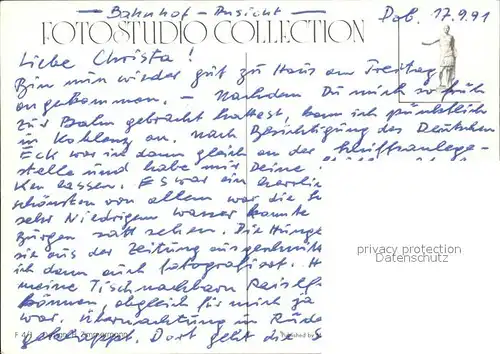 — Bahnhof – Ansicht —
Dob. 17.9.91
FOTOSTUDIO COLLECTION
Liebe Christa!
Bin nun wieder gut zu Haus am Freitag
angekommen. – Nachdem Du mich so früh
zur Bahn gebracht hattest, kam ich pünktlich
in Koblenz an. nach Besichtigung des Deutschen
Eck war ich dann gleich an der Schiffsanlege-
stelle und habe mir Deine
ken lassen. Es war ein herrli
schönsten von allem war die
sehr Niedrigem wasser konnte
Burgen satt sehen. Die
sie aus der Zeitung ausgeschnitt
ich dann auch fotografiert. H
meine Tischnachbarn
können, obgleich für mich ja
war. Übernachtung in Rüde
geklappt. Dort geht die S
privacy protection
Datenschutz
F 4
Published by